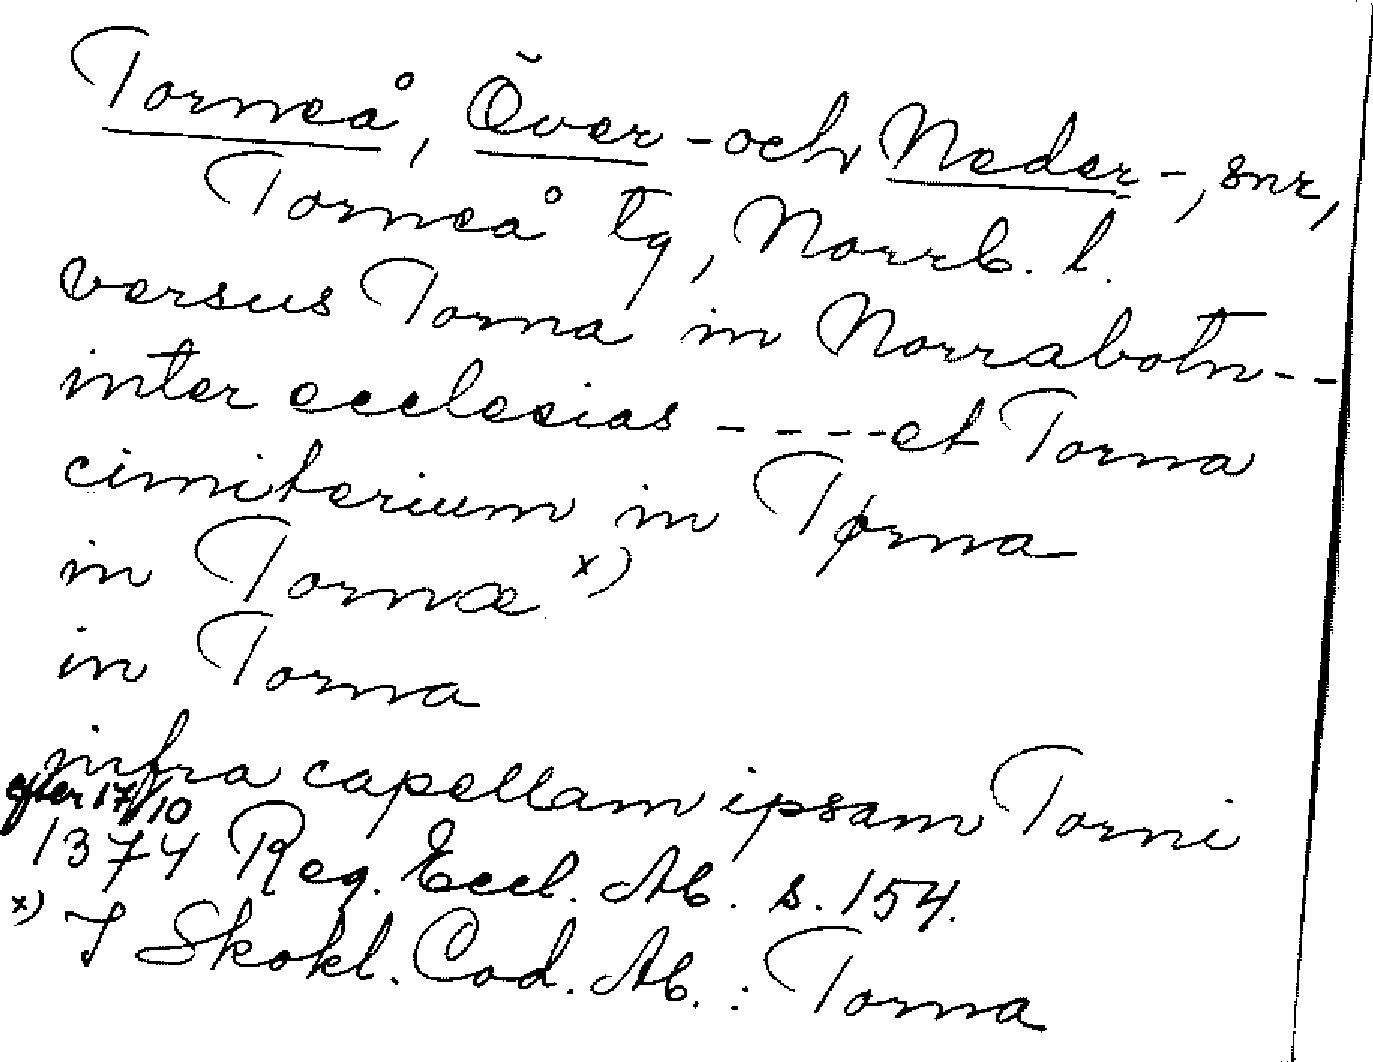 Torneå, Över- och Neder-, snr,
Torneå tg, Norrb. l.
versus Torna in Norrabotn--
inter ecclesias ----et Torna
cimiterium in Tørna
in Tornæ x)
in Torna
infra capellam ipsam Torni
efter 17/10
1374 Reg. Eccl. Ab. s. 154.
x) I Skokl. Cod. Ab. : Torna